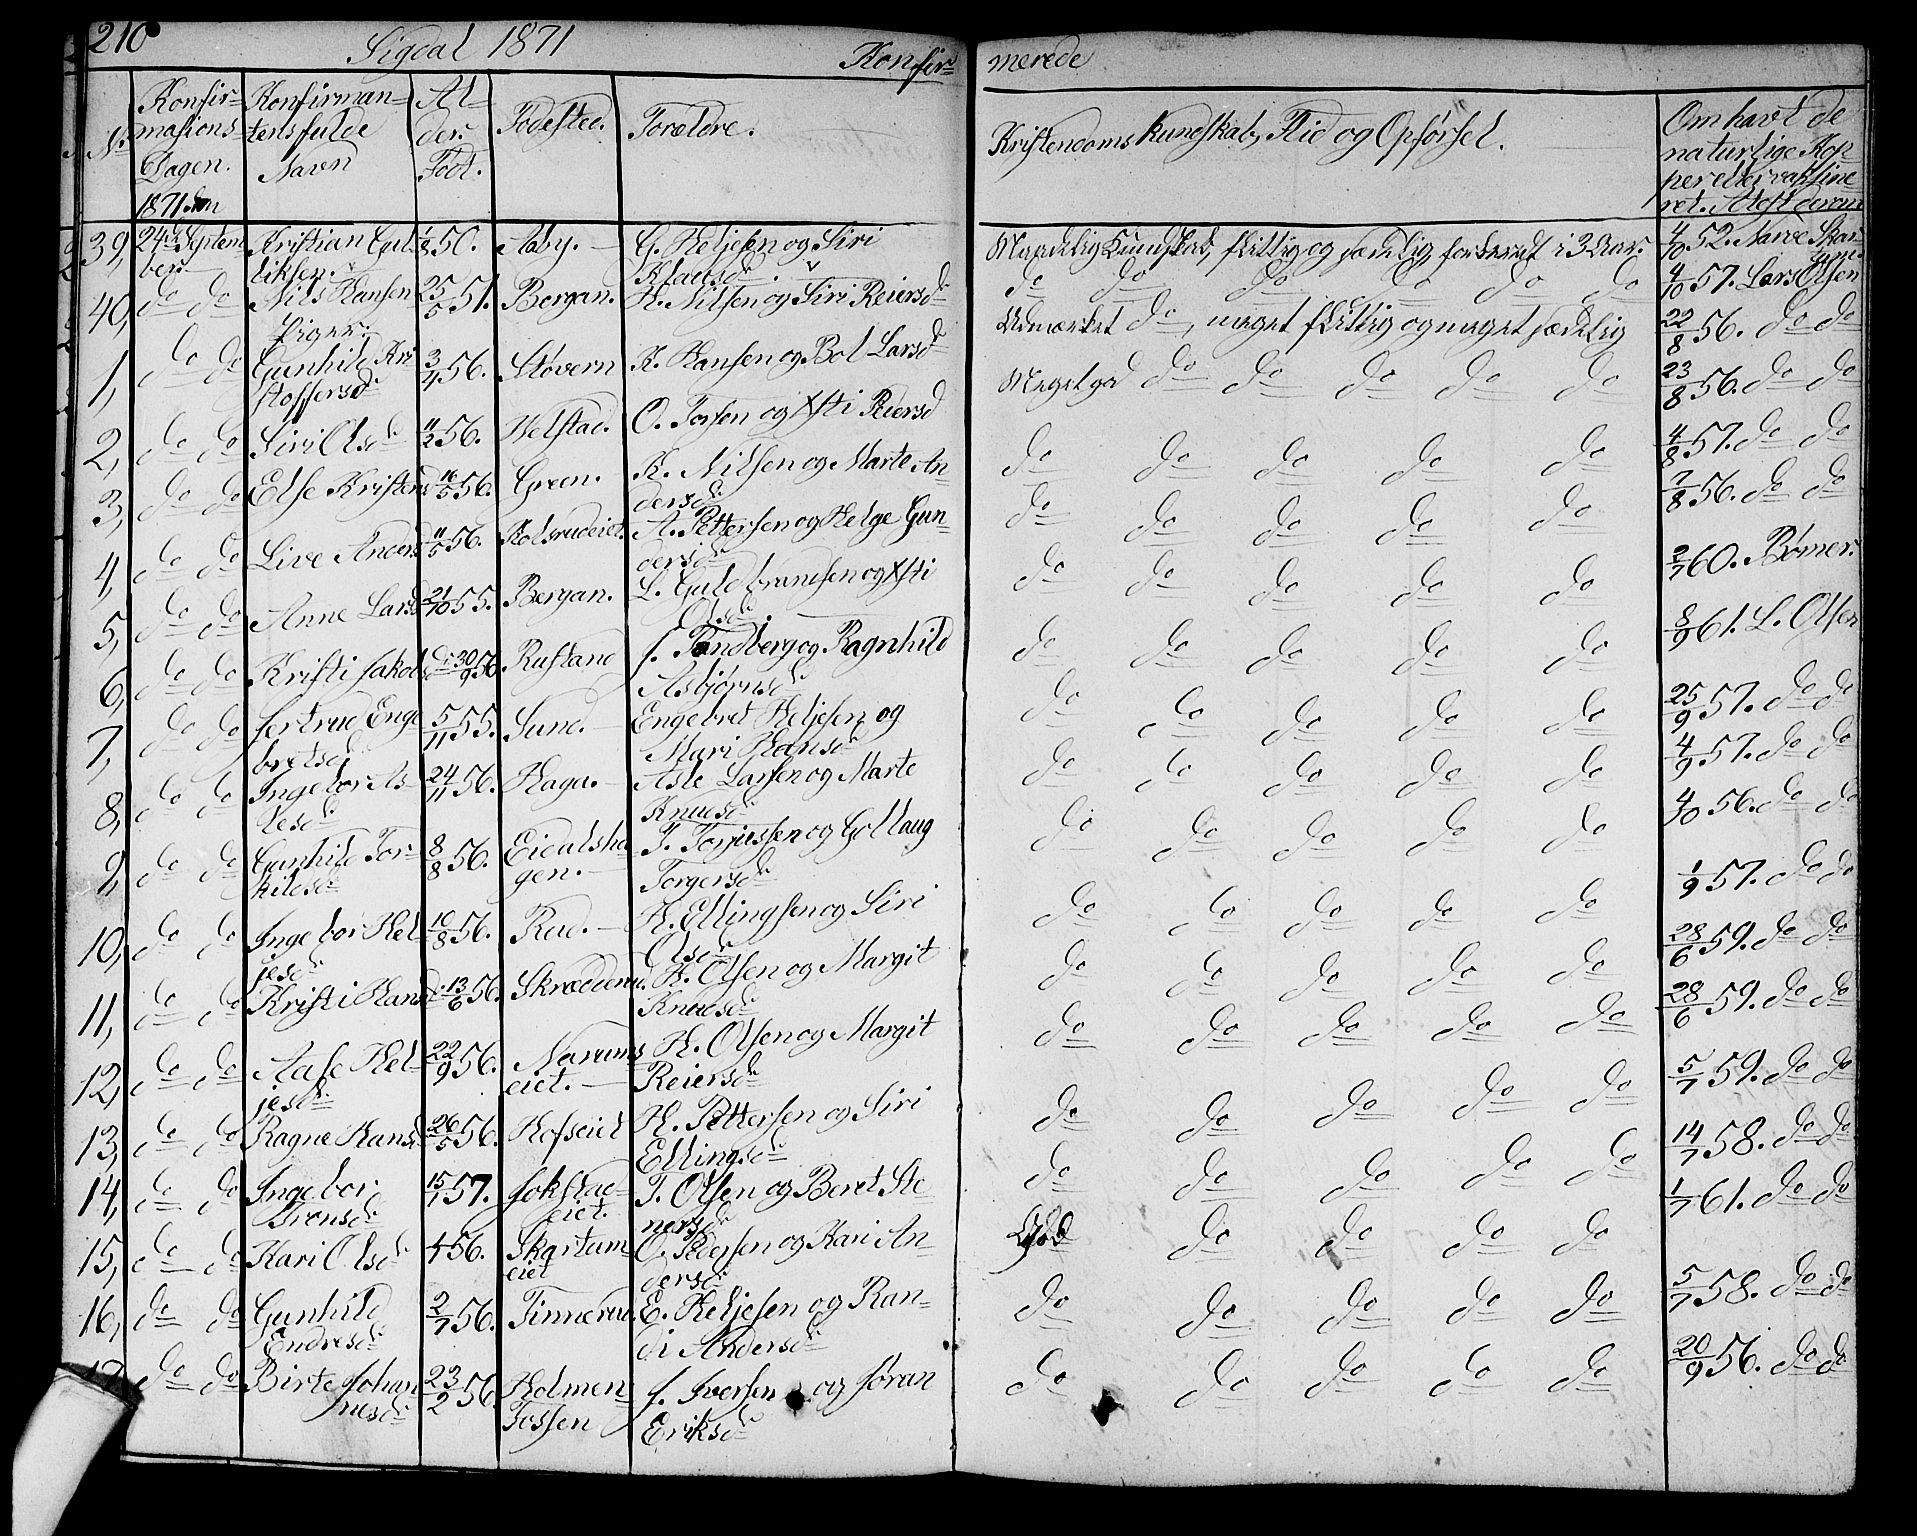 210 Sigdal 1871 Konfir= merede
No Konfir= masions Dagen. 1871 den
Konfirman= tens fulde Navn
Al= der. Född.
Födested.
Foreldre.
Kristendoms kundskab, Flid og Opförsel.
Om havt de naturlige Kop= per eller vaksine= ret. Atest derom
39, 24de Septem ber Kristian Gul= liksen 50. Aaby. G. Heljesen og Siri Klausd: flittig og sædelig, i 3 Aar. 4/10 52. Narve Skar=
40, do do Nils Hansen 25/5 51. Bergan. H. Nilsen og Siri Reiersd: do do do do do do 4/10 57. Lars Olsen
Piger:
1, do do Gunhild Kri= stoffersd: 3/4 56. Stövern K. Hansen og Bol Larsd: Udmærket do, meget flittig og meget sædelig 22/8 56. do do
2, do do Siri Olsd: 11/2 56. Velstad. O. Torsen og Xsti Reiersd Meget god do do do do do 23/8 56. do do
3, do do Else Kristensd 16/5 56. Green. K. Nilsen og Marte An= dersd: do do do do do 4/8 57. do do
4, do do Live Andersd 11/5 56. Kolsrudeiet. A. Pettersen og Helge Gun= dersd: do do do do do 7/8 56. do do
5, do do Anne Larsd 21/10 55. Bergan. L. Guldbrandsen og Xsti Olsd: do do do do do 2/7 60. Römer.
6, do do Kristi Jakobsd: 30/9 56 Rustand J. Tandberg og Ragnhild Asbjörnsd: do do do do do 8/9 61. L. Olsen
7, do do Jertrud Enge= bretsd 5/11 55. Sund. Engebret Heljesen og Mari Hansd: do do do do do 25/9 57. do do
8, do do Ingebor As= lesd: 24/11 56. Haga. Asle Larsen og Marte Knudsd: do do do do do 4/9 57. do do
9, do do Gunhild Tor= kildsd: 8/8 56. Eidalsha= gen. T. Torjussen og Gollaug Torgersd: do do do do do 4/10 56. do do
10, do do Ingebor Hel= jesd: 16/8 56. Rud. H. Ellingsen og Siri Olsd: do do do do do 1/9 57. do do
11, do do Kristi Hansd: 13/6 56. Skrædderud. H. Olsen og Margit Knudsd: do do do do do 28/6 59. do do
12, do do Aase Hel= jesd: 22/9 56. Narums eiet. H. Olsen og Margit Reiersd: do do do do do 28/6 59. do do
13, do do Ragne Hansd 26/5 56. Hofseiet H. Pettersen og Siri Ellingsd: do do do do do 5/7 59. do do
14, do do Ingebor Tronsd: 15/1 57. Jokstad= eiet. T. Olsen og Beret Ste= nersd: do do do do do 14/7 58. do do
15, do do Kari Olsd: 56. Skartum eiet O. Pedersen og Kari An= dersd: God do do do do 1/7 61. do do
16, do do Gunhild Endresd: 2/7 56. Finnerud. E. Heljesen og Ran= di Andersd: do do do do do 5/7 58. do do
17 do do Birte Johan nesd: 23/2 56. Holmen Fossen J. Iversen og Jöran Eriksd: do do do do do 20/9 56. do do